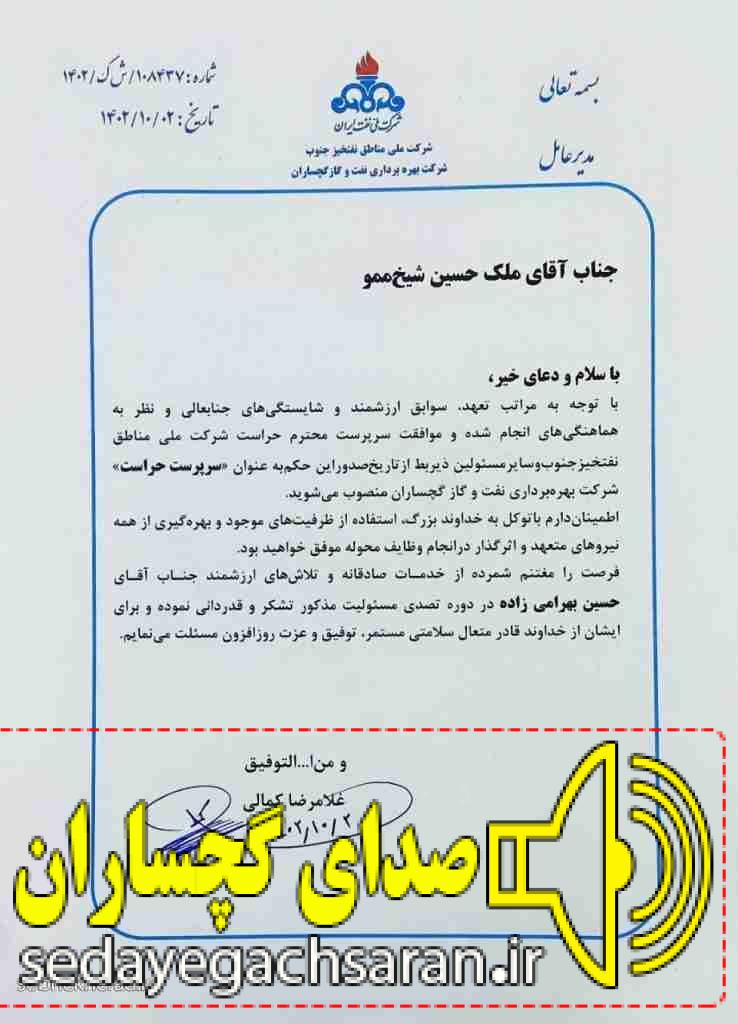 بسمه تعالی
مدیرعامل
شرکت ملی نفت ایران
شرکت ملی مناطق نفتخیز جنوب
شرکت بهره برداری نفت و گاز گچساران
شماره: ۱۰۸۴۳۷/ش ک/۱۴۰۲
تاریخ: ۱۴۰۲/۱۰/۰۲
جناب آقای ملک حسین شیخ‌ممو
با سلام و دعای خیر،
با توجه به مراتب تعهد، سوابق ارزشمند و شایستگی‌های جنابعالی و نظر به
هماهنگی‌های انجام شده و موافقت سرپرست محترم حراست شرکت ملی مناطق
نفتخیزجنوب‌وسایرمسئولین ذیربط ازتاریخ‌صدوراین حکم‌به عنوان «سرپرست حراست»
شرکت بهره‌برداری نفت و گاز گچساران منصوب می‌شوید.
اطمینان‌دارم باتوکل به خداوند بزرگ، استفاده از ظرفیت‌های موجود و بهره‌گیری از همه
نیروهای متعهد و اثرگذار درانجام وظایف محوله موفق خواهید بود.
فرصت را مغتنم شمرده از خدمات صادقانه و تلاش‌های ارزشمند جناب آقای
حسین بهرامی زاده در دوره تصدی مسئولیت مذکور تشکر و قدردانی نموده و برای
ایشان از خداوند قادر متعال سلامتی مستمر، توفیق و عزت روزافزون مسئلت می‌نمایم.
و من‌ا...التوفیق
غلامرضا کمالی
صدای گچساران
sedayegachsaran.ir